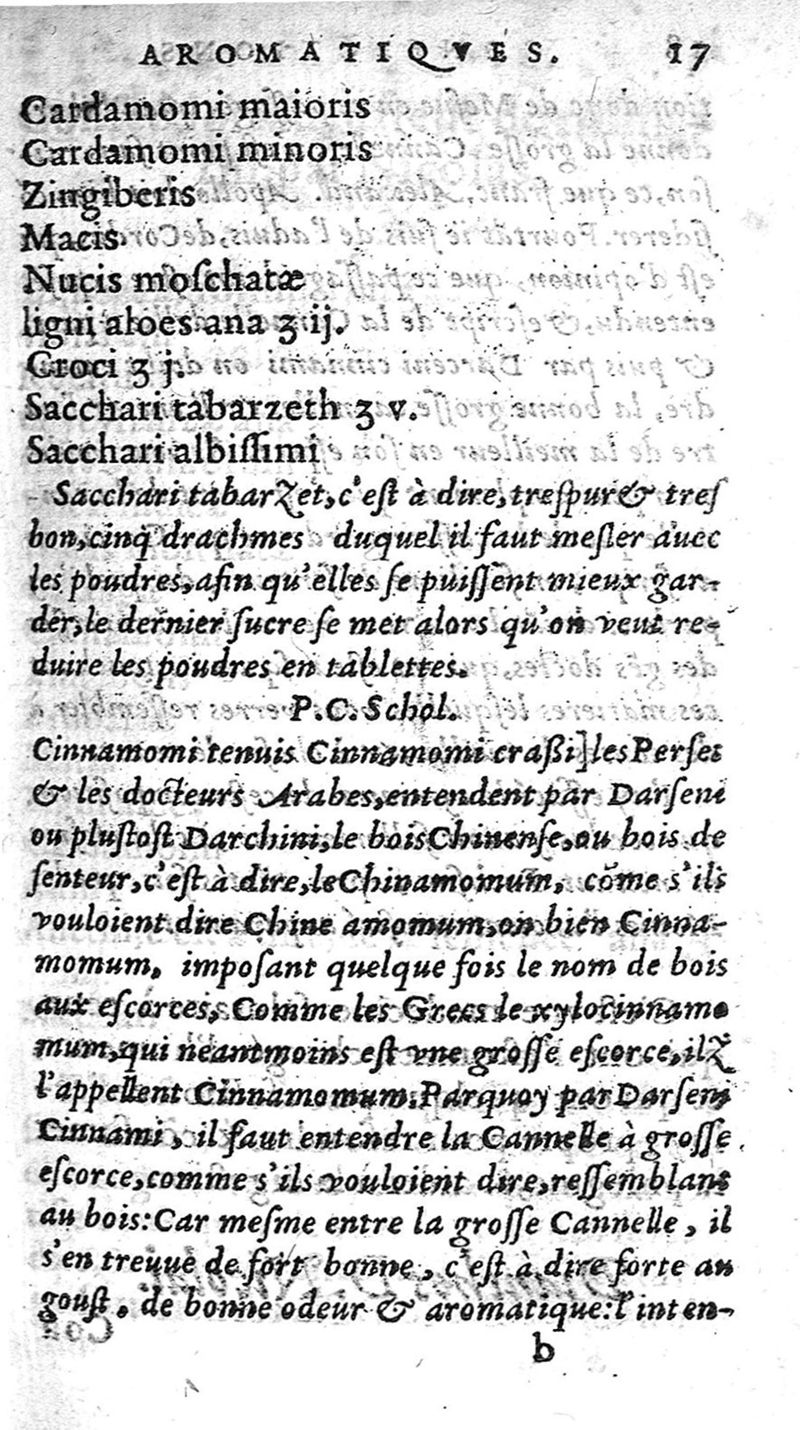 AROMATIQVES. 17
Cardamomi maioris
Cardamomi minoris
Zingiberis
Macis
Nucis moſchatæ
ligni aloes ana ʒ ij.
Croci ʒ j.
Sacchari tabarzeth ʒ v.
Sacchari albiſſimi
Sacchari tabarzet, c'eſt à dire, treſpur & treſ
bon, cinq drachmes duquel il faut meſler auec
les poudres, afin qu'elles ſe puiſſent mieux gar-
der, le dernier ſucre ſe met alors qu'on veut re-
duire les poudres en tablettes.
P. C. Schol.
Cinnamomi tenuis Cinnamomi craßi] les Perſes
& les docteurs Arabes, entendent par Darſeni
ou pluſtoſt Darchini, le bois Chinenſe, ou bois de
ſenteur, c'eſt à dire, le Chinamomum, cōme s'ils
vouloient dire Chine amomum, ou bien Cinna-
momum, impoſant quelque fois le nom de bois
aux eſcorces, Comme les Grecs le xylocinnamo
mum, qui neantmoins eſt vne groſſe eſcorce, ilz
l'appellent Cinnamomum. Parquoy par Darſeni
Cinnami, il faut entendre la Cannelle à groſſe
eſcorce, comme s'ils vouloient dire, reſſemblant
au bois: Car meſme entre la groſſe Cannelle, il
s'en treuue de fort bonne, c'eſt à dire forte au
gouſt, de bonne odeur & aromatique: l'inten-
b